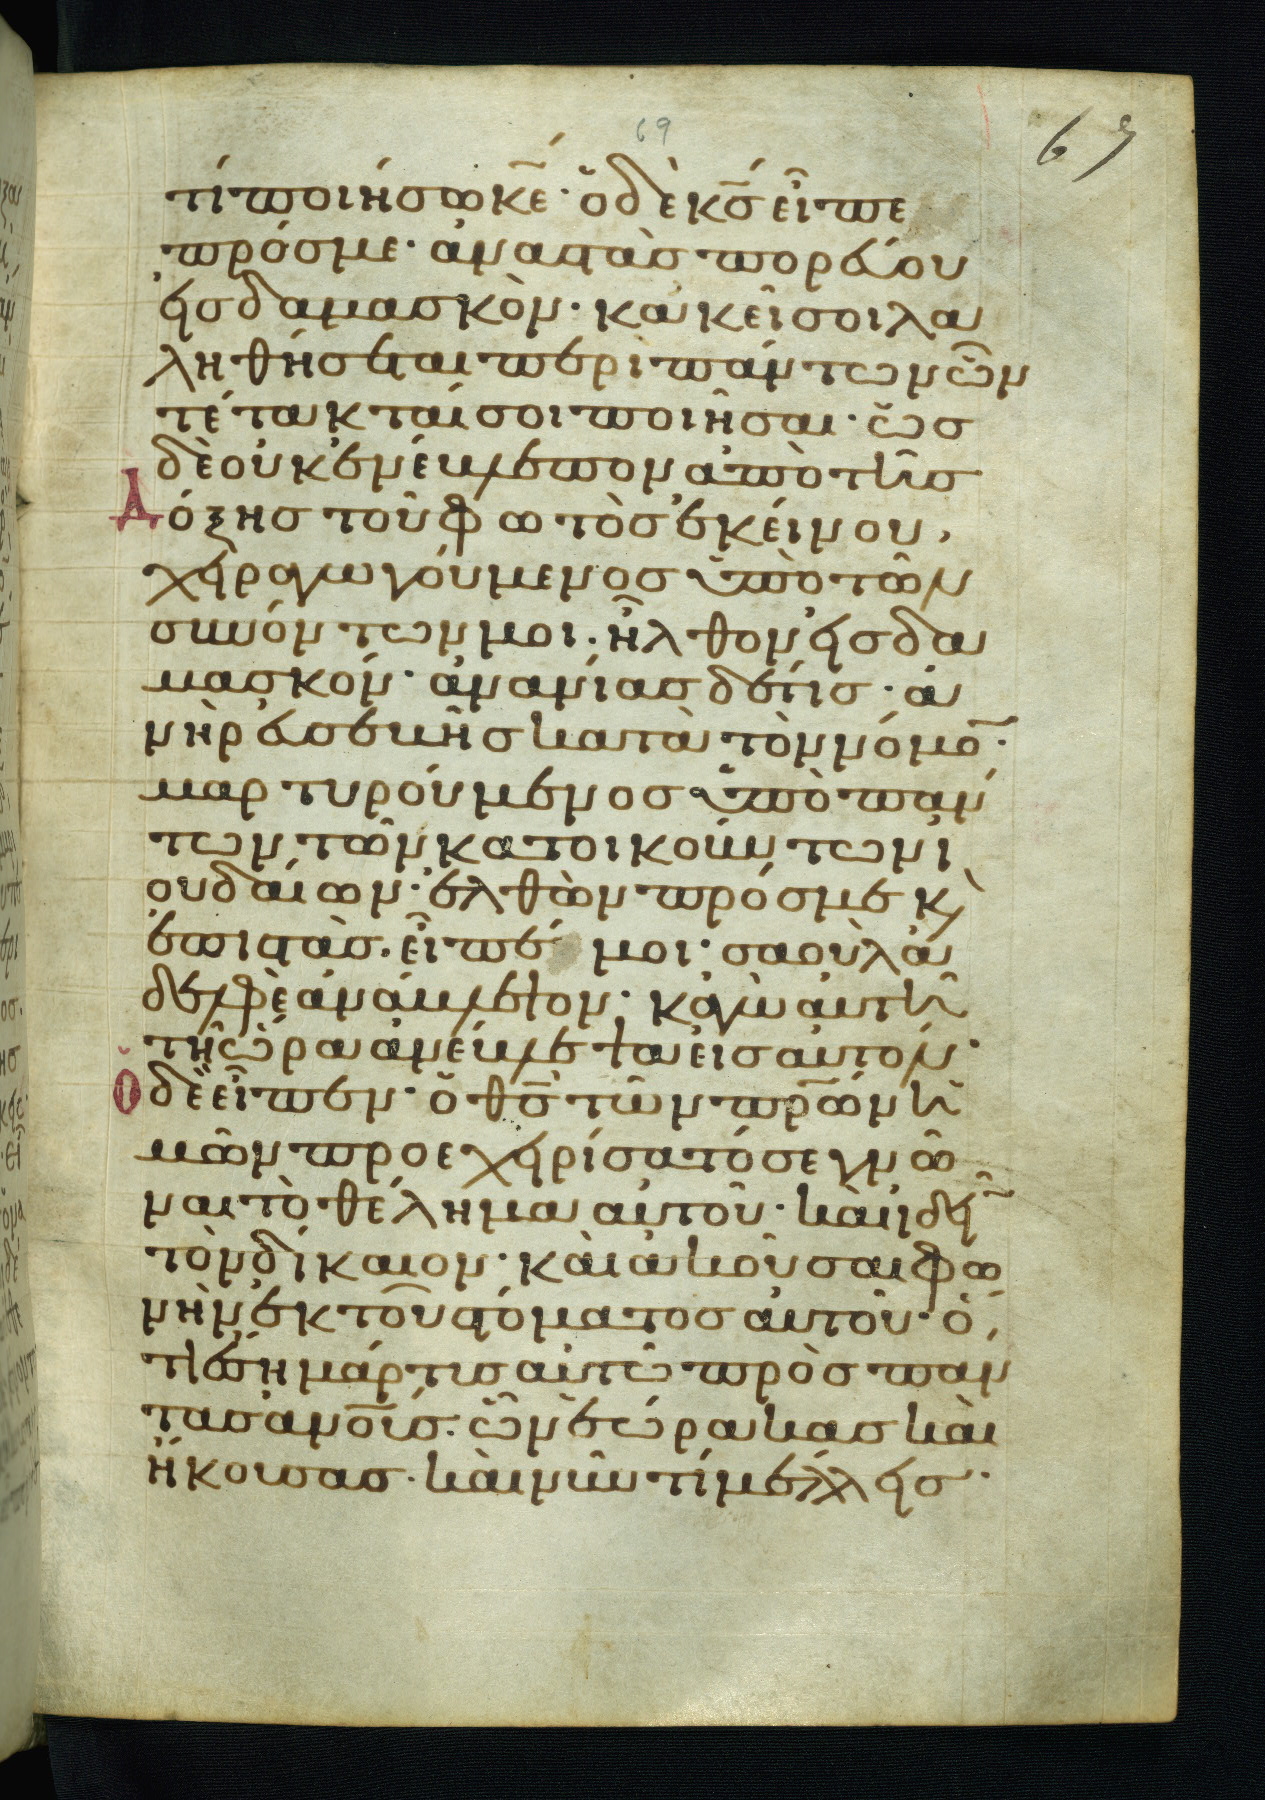 69
67
τί ποιήσω κ̅ε· ὁ δὲ κ̅ς εἶπε
πρόσ με· ἀναστὰσ πορεύου
εἰσ δαμασκὸν· κακεῖ σοι λα
ληθήσεται περὶ πάντων ὧν
τέτακταί σοι ποιῆσαι· ὡσ
δὲ οὐκ ἐνέβλεπον ἀπὸ τῆσ
Δόξησ τοῦ φωτὸσ ἐκείνου,
χειραγωγούμενοσ ὑπὸ τῶν
συνόντων μοι. ἦλθον εἰσ δα
μασκόν· ἀνανίασ δέ τίσ· ἀ
νὴρ εὐσεβὴσ κατὰ τὸν νόμο̅·
μαρτυρούμενοσ ὑπὸ πάν
των τῶν κατοικούντων ἰ
ουδαίων· ἐλθὼν πρόσ με κ̀
ἐπιστὰσ. εἶπέ μοι· σαοὺλ ἀ
δελφὲ ἀνάβλεψον· κἀγὼ αὐτῆ
τῆ ὥρα ἀνέβλεψα εἰσ αὐτόν·
Ὁ δὲ εἶπεν· ὁ θ̅ς τῶν πρ̅ων ἡ
μῶν προεχειρίσατό σε γνῶ
ναι τὸ θέλημα αὐτοῦ· καὶ ἰδεῖ̅
τὸν δίκαιον· καὶ ἀκοῦσαι φω
νὴν ἐκ τοῦ στόματοσ αὐτοῦ· ὅ,
τι ἔση μάρτυσ αὐτῶ πρὸσ πάν
τασ ἀν̅ουσ. ὧν ἑώρακασ καὶ
ἤκουσασ· καὶ νῦν τί μέλλεισ·